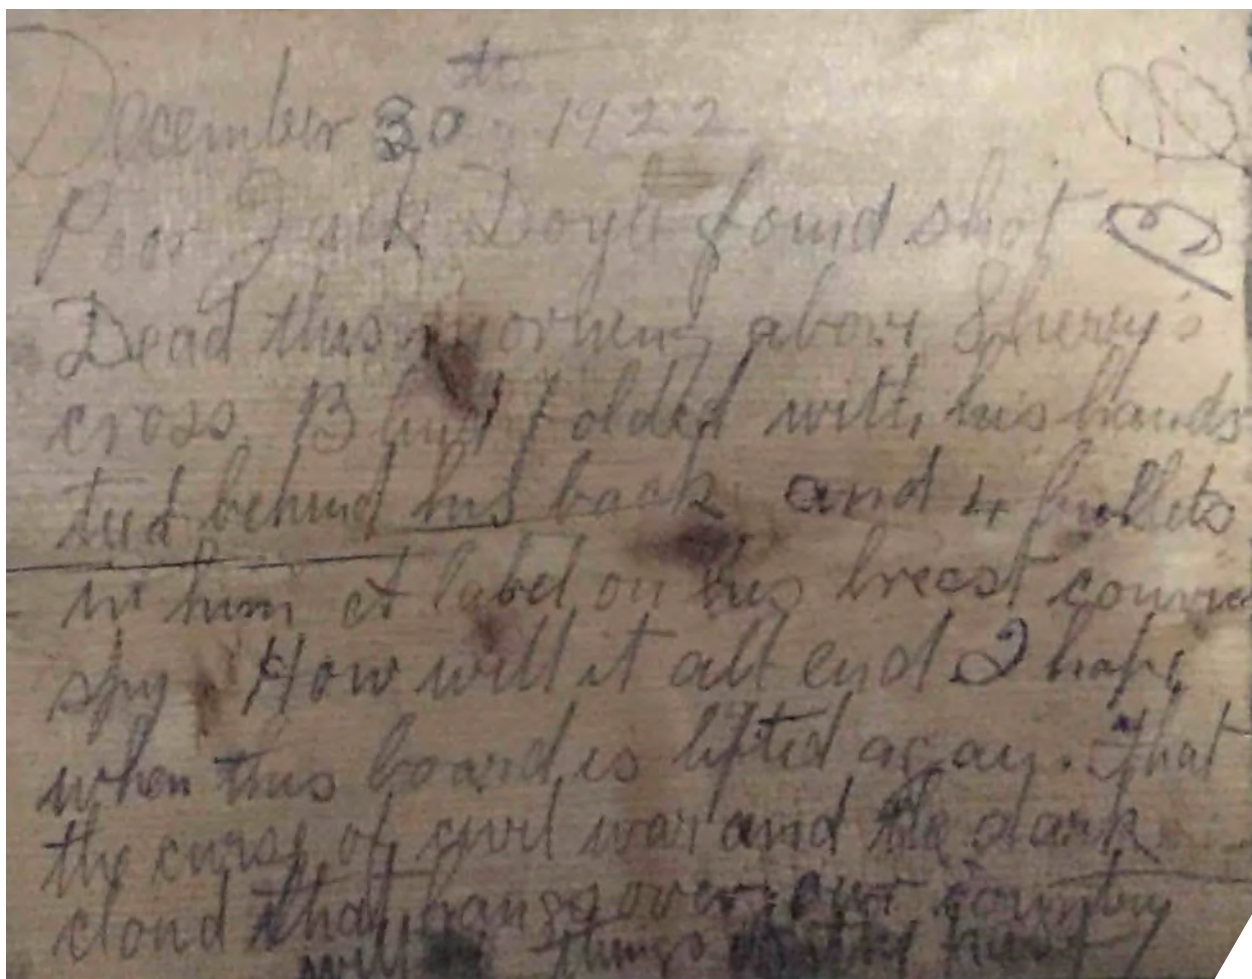 December 30th 1922
Poor Jack Doyle found shot
Dead this morning above Sherry's
cross. Blind folded with his hands
tied behind his back and 4 bullets
in him a label on his breast
spy How will it all end I hope
when this board is lifted again. that
the curse of civil war and the dark
cloud that hangs over our country
will things